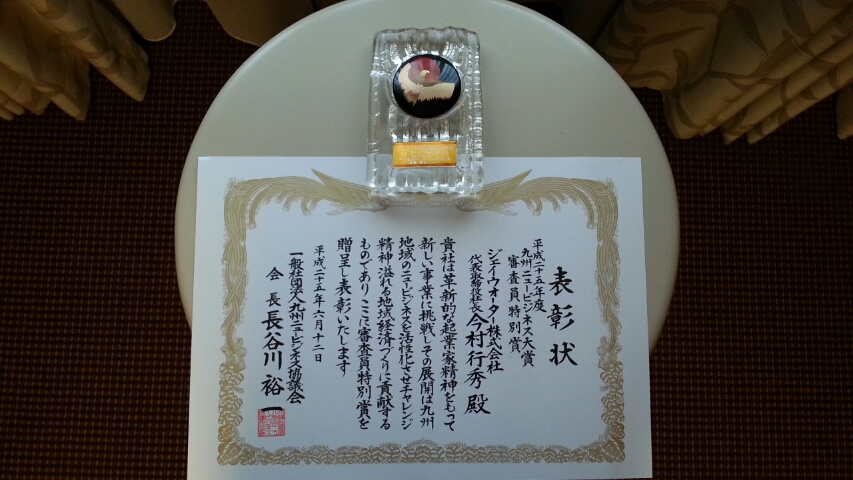 表彰状
平成二十五年度
九州ニュービジネス大賞
審査員特別賞
ジェイウォーター株式会社
代表取締役社長 今村行秀 殿
貴社は革新的な起業家精神をもって
新しい事業に挑戦しその展開は九州
地域のニュービジネスを活性化させチャレンジ
精神溢れる地域経済づくりに貢献する
ものでありここに審査員特別賞を
贈呈し表彰いたします
平成二十五年六月十二日
一般社団法人九州ニュービジネス協議会
会長 長谷川裕一